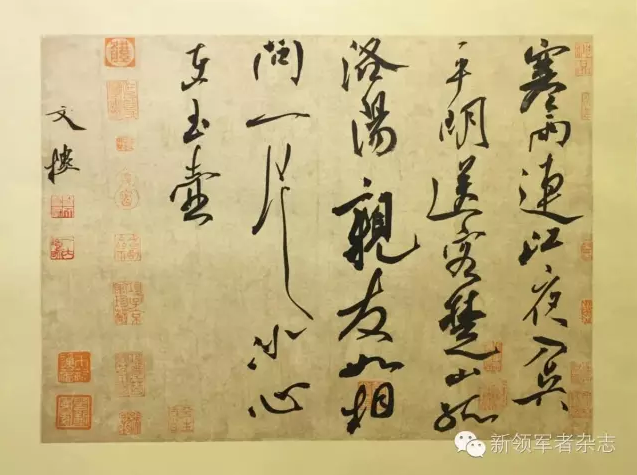 寒雨連江夜入吴
平明送客楚山孤
洛陽親友如相
問一片冰心
在玉壺
文樓
新领军者杂志